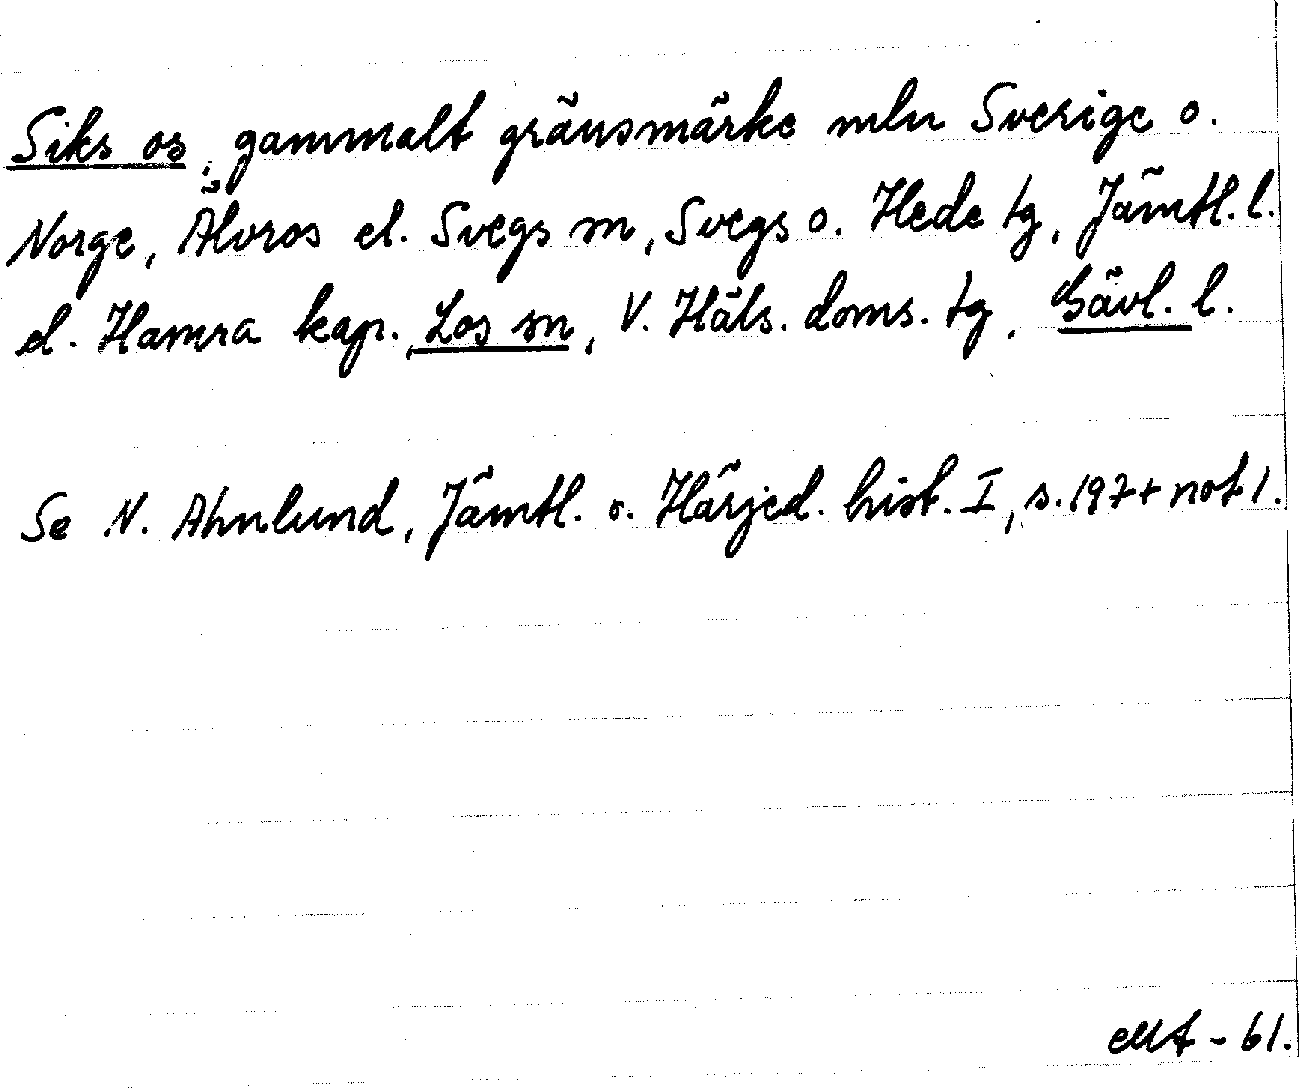 Siks os, gammalt gränsmärke mln Sverige o.
Norge, Älvros el. Svegs sn, Svegs o. Hede tg, Jämtl. l.
el. Hamra kap., Los sn, V. Häls. doms. tg, Gävl. l.
Se N. Ahnlund, Jämtl. o. Härjed. hist. I, s. 197 + not 1.
- 61.